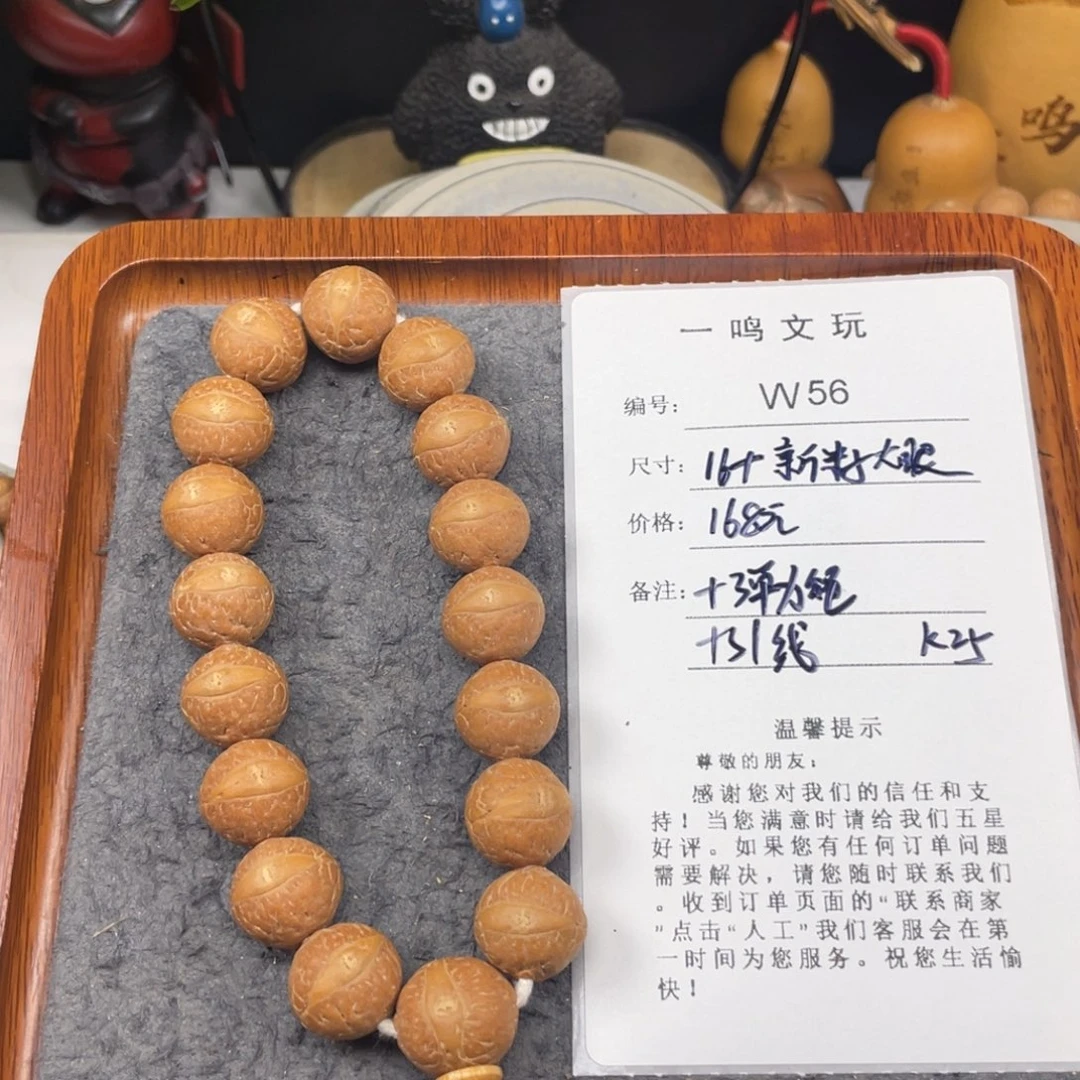 鸣
一鸣文玩
编号: W56
尺寸: 16+ 新籽大眼
价格: 168元
备注: 十3弹力绳
十3引线 K25
温馨提示
尊敬的朋友:
感谢您对我们的信任和支
持!当您满意时请给我们五星
好评。如果您有任何订单问题
需要解决,请您随时联系我们
。收到订单页面的“联系商家
”点击“人工”我们客服会在第
一时间为您服务。祝您生活愉
快!